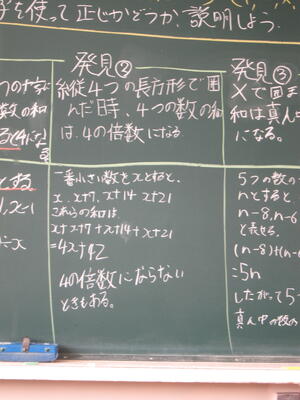 を使って正しかどうか、説明しよう。
つの十字に
数の和
る
発見②
縦4つの長方形で囲
んだ時、4つの数の和
は、4の倍数になる
発見③
Xで囲
和は真ん
になる。
一番小さい数をxとすると、
x、x+7、x+14 x+21
これらの和は
x+x+7+x+14+x+21
=4x+42
4の倍数にならない
ときもある。
とする
x-1
÷x
5つの数の
nとすると
n-8, n-6
と表せる。
(n-8)+(n-6
=5n
したがって5
真ん中の数の